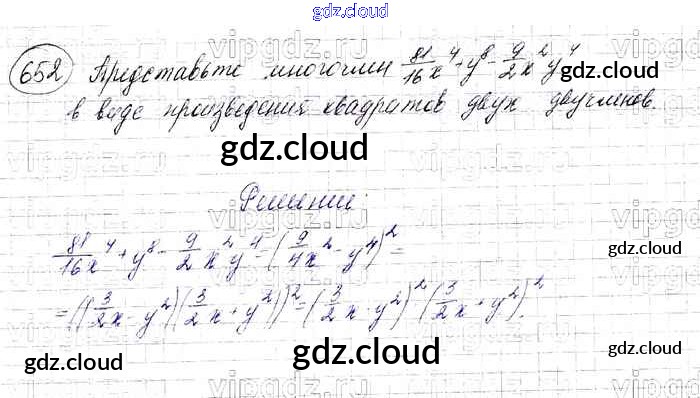 gdz.cloud
652 Представьте многочлен 81/16 x^4 + y^8 - 9/2 x^2 y^4
gdz.cloud
в виде произведения квадратов двух двучленов.
gdz.cloud
Решение:
81/16 x^4 + y^8 - 9/2 x^2 y^4 = (9/4 x^2 - y^4)^2 =
gdz.cloud
= ((3/2 x - y^2)(3/2 x + y^2))^2 = (3/2 x - y^2)^2 (3/2 x + y^2)^2.
gdz.cloud
gdz.cloud
gdz.cloud